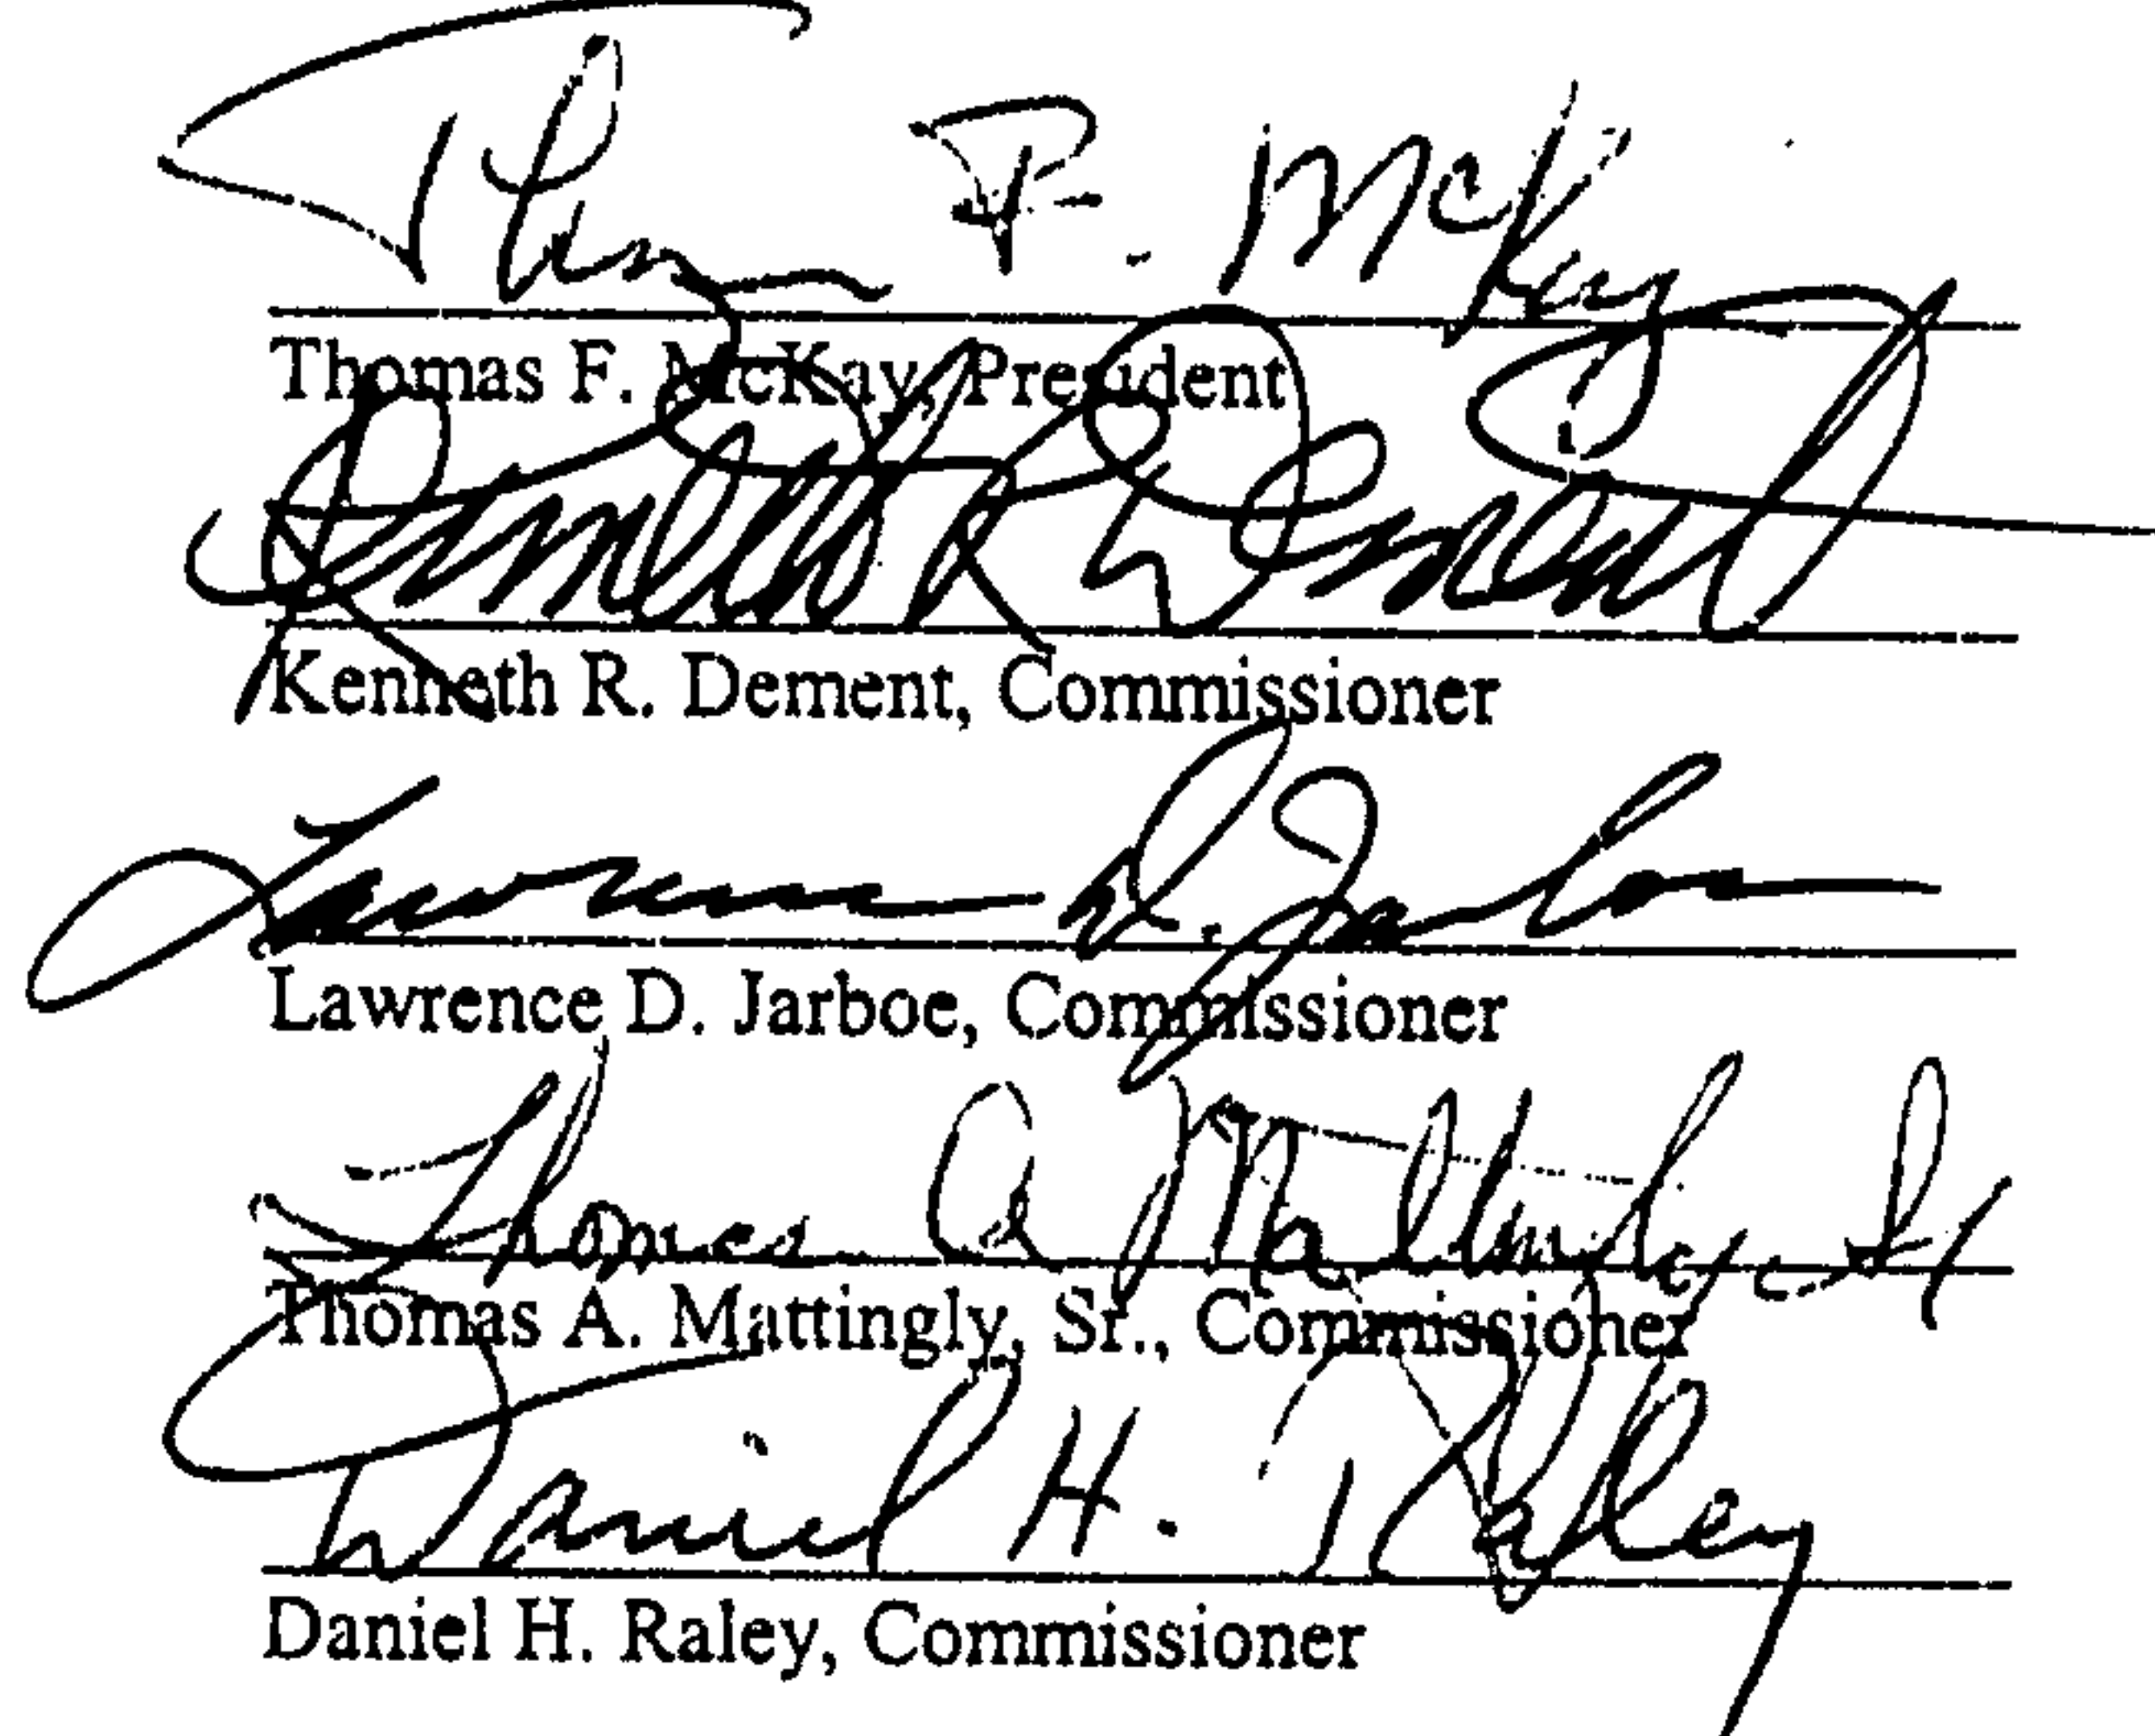 Thomas F. McKay
Thomas F. McKay, President
Kenneth R. Dement
Kenneth R. Dement, Commissioner
Lawrence D. Jarboe
Lawrence D. Jarboe, Commissioner
Thomas A. Mattingly Sr
Thomas A. Mattingly, Sr., Commissioner
Daniel H. Raley
Daniel H. Raley, Commissioner